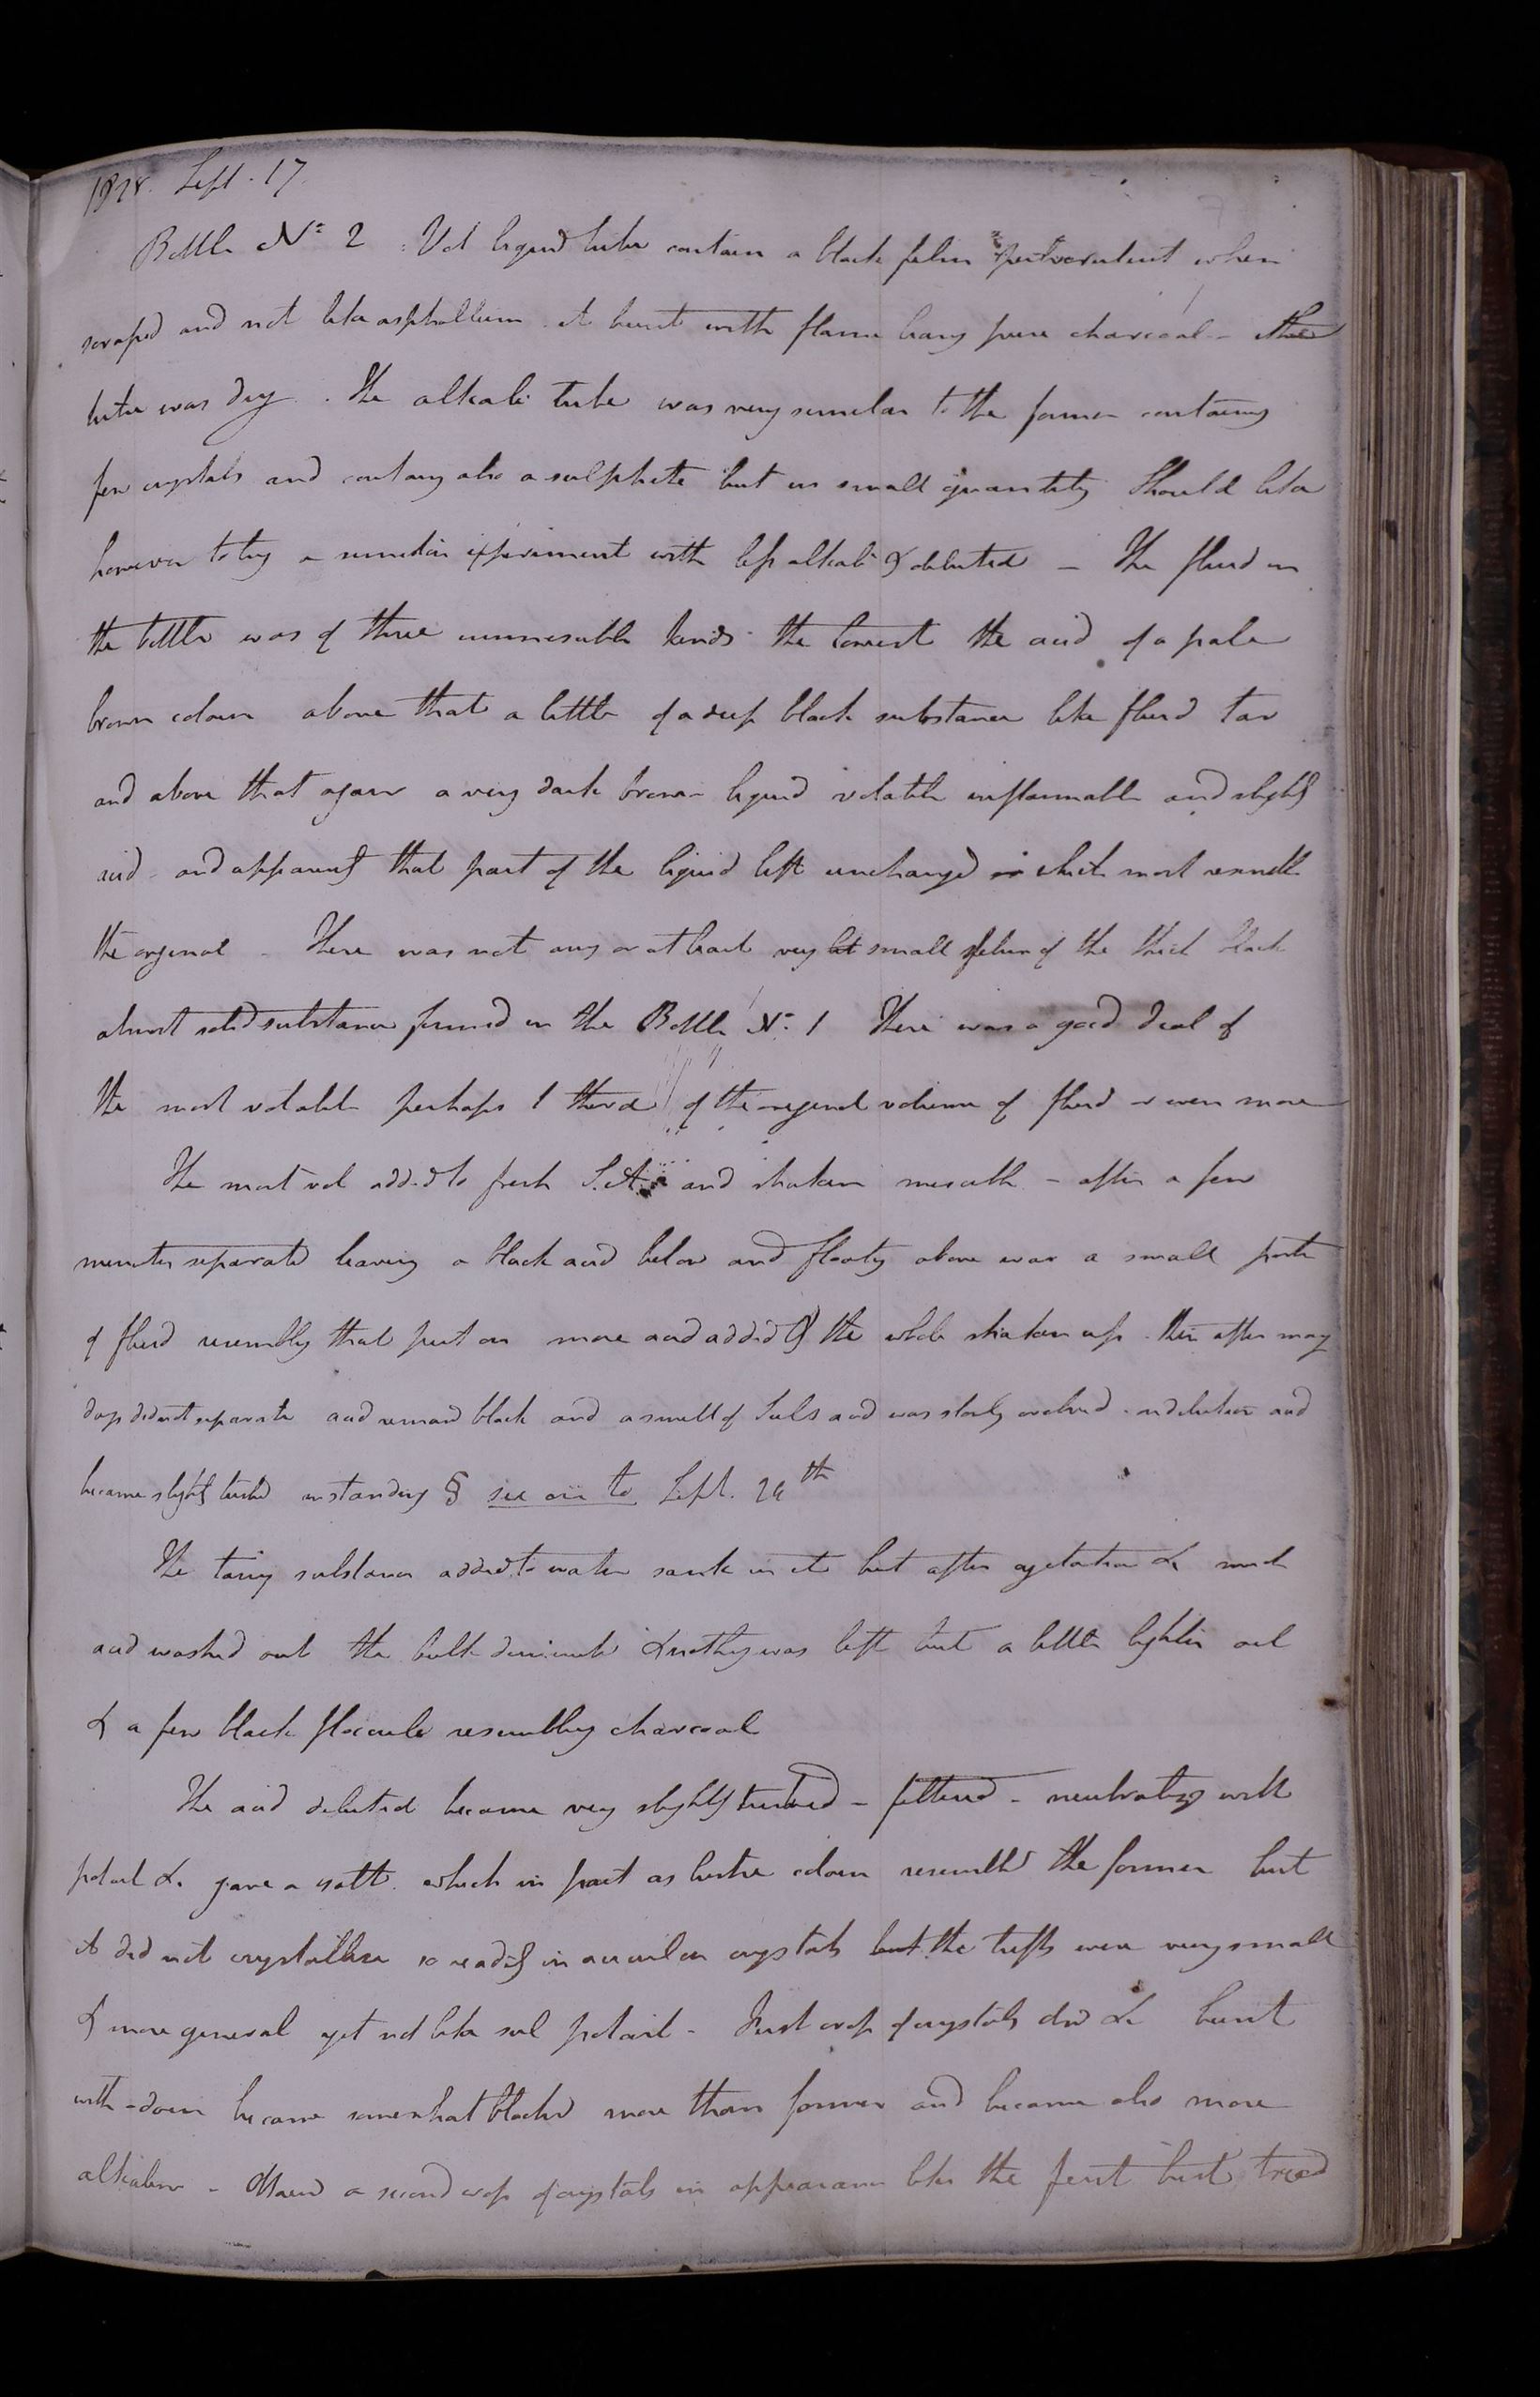 1828. Sept. 17.
Bottle No 2 Vol liquid tube contain a black film pulverulent when
scraped and not like asphaltum it burnt with flame leavg pure charcoal - the
tube was dry. The alkali tube was very similar to the former containing
few crystals and containg also a sulphate but in small quantity Should like
however to try a similar experiment with less alkali & diluted - The fluid in
the bottle was of three immiscible kinds the lowest the acid of a pale
brown colour above that a little of a deep black substance like fluid tar
and above that again a very dark brown liquid volatile inflammable and slightly
acid - and apparently that part of the liquid left unchanged or which most resemble
the original - There was not any or at least very small film of the thick black
almost solid substance formed in the Bottle No. 1 There was a good deal of
the most volatile perhaps 1 third of the original volume of fluid or even more
The most vol added to fresh S.A. and shaken miscible - after a few
minutes separated leaving a black acid below and floatg above was a small portn
of fluid resembly that put on more acid added & the whole shaken up this after many
days did not separate acid remand black and a smell of Sul acid was slowly evolved - on dilution acid
became slightly turbid on standing § see on to Sept. 24th
The tarry substance added to water sank in it but after agitation &c much
acid washed out the bulk diminished & nothing was left but a little lighter oil
& a few black flocculi resembling charcoal
The acid diluted became very slightly turbid - filtered - neutralizg with
potash &c gave a salt which in part as lustre colour resembled the former but
it did not crystallize so readily in acicular crystals but the tufts were very small
& more general yet not like sul potash - First crop of crystals dried &c burnt
with down became somewhat blackd more than former and became also more
alkaline - Obtained a second crop of crystals in appearance like the first but tried